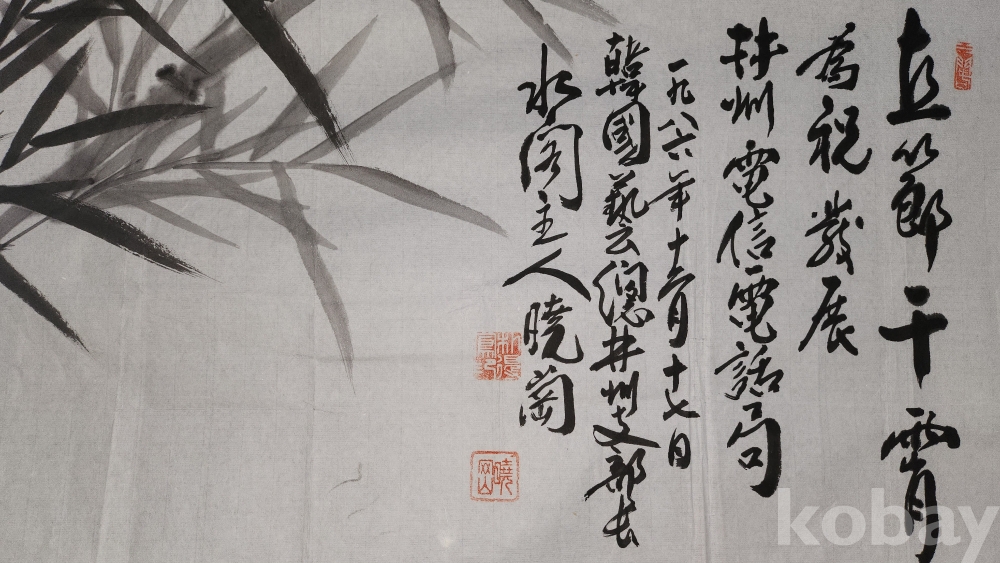 直節干霄
為祝發展
州電信電話局
一九八六年十二月十七日
韓國藝總井州支部長
水閣主人曉崗
kobay